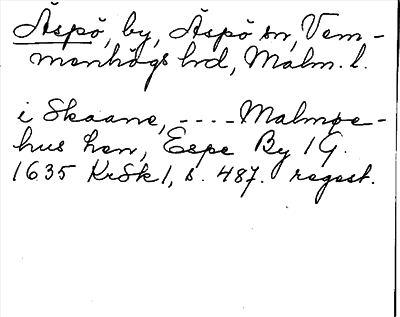 Äspö, by, Äspö sn, Vem-
menhögs hd, Malm. l.
i Skaane, ---- Malmøe-
hus Len, Espe By 1 G.
1635 KrSk 1, s. 487. regest.